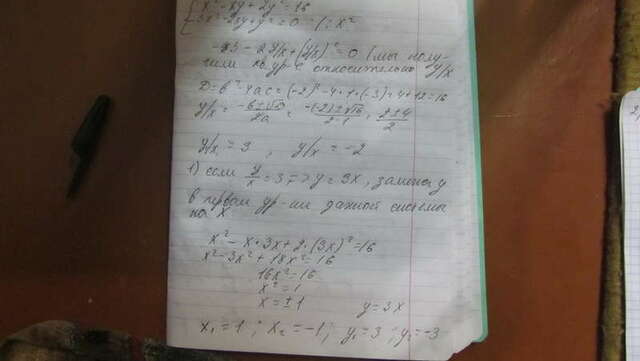 x² - xy + 2y² = 16
3x² - 2xy + y² = 0 | : x²
-3 - 2y/x + (y/x)² = 0 (мы полу-
чили кв. ур-е относительно y/x
D = b² - 4ac = (-2)² - 4·1·(-3) = 4 + 12 = 16
y/x = -b±√D/2a = -(-2)±√16/2·1, 2±4/2
y/x = 3, y/x = -2
1) если y/x = 3, => y = 3x, заменяя y
в первом ур-ии данной системы
на x
x² - x·3x + 2·(3x)² = 16
x² - 3x² + 18x² = 16
16x² = 16
x² = 1
x = ±1 y = 3x
x₁ = 1; x₂ = -1; y₁ = 3; y₂ = -3